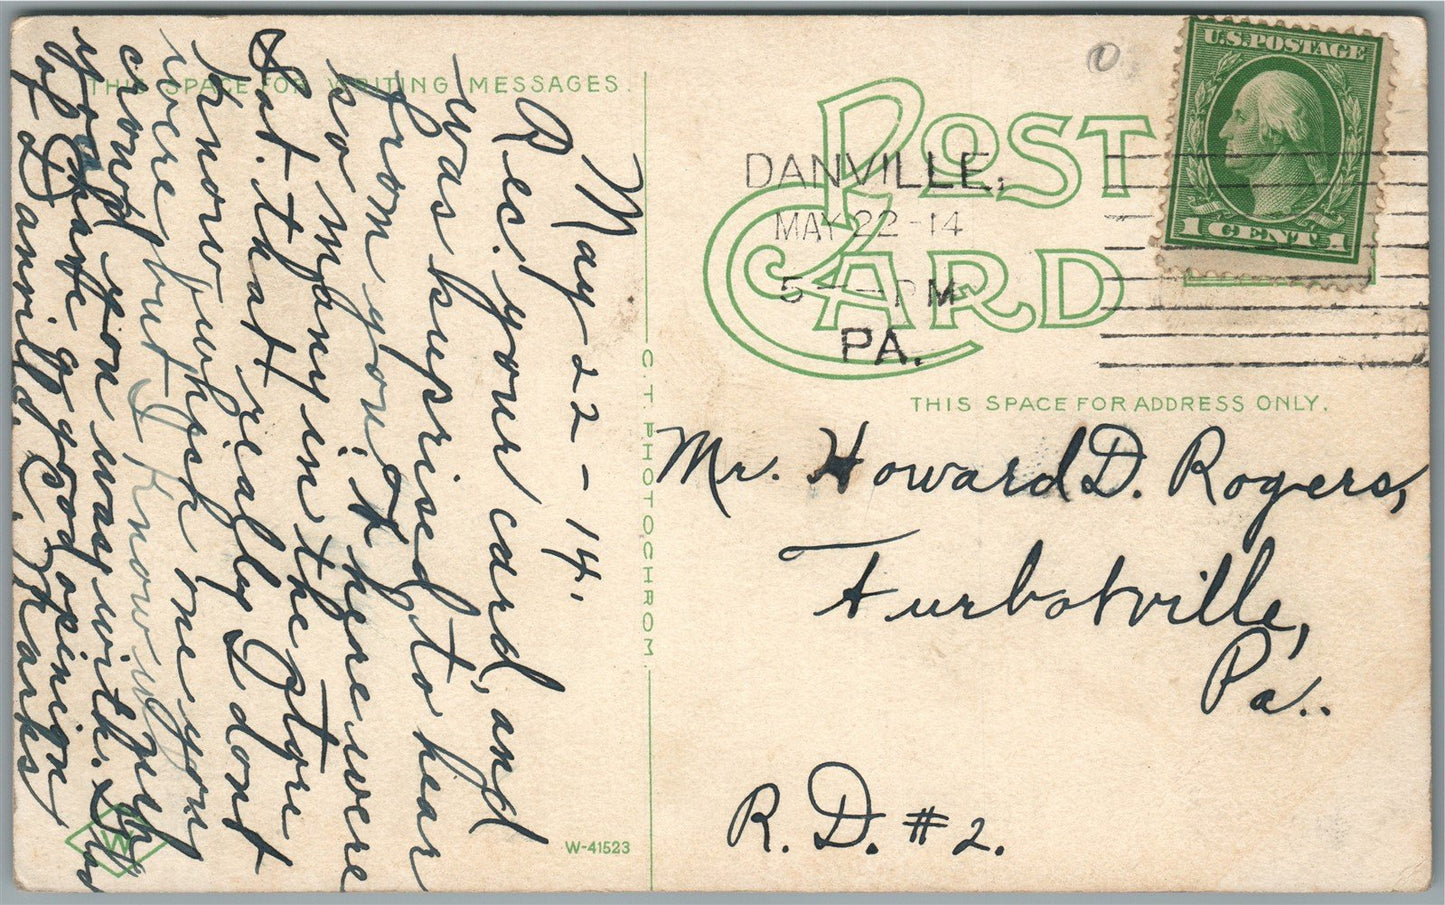 THIS SPACE FOR WRITING MESSAGES.
May 22 - 14.
Rec. your card, and
was suprised to hear
from you; there were
so many in the store
Sat. that really I dont
know which one you
were but I know
crowd you was with. Im
of Danville. C. Marks
C. T. PHOTOCHROM.
W
W-41523
POST
CARD
U.S. POSTAGE
1 CENT 1
DANVILLE,
MAY 22-14
5 - PM
PA.
THIS SPACE FOR ADDRESS ONLY.
Mr. Howard D. Rogers,
Turbotville,
Pa..
R. D. #2.